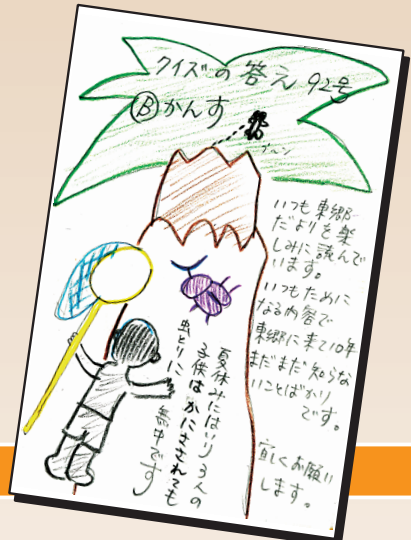 クイズの答え 92号
Ⓑかんす
ブーン
いつも東郷
だよりを楽
しみに読んで
います。
いつもために
なる内容で
東郷に来て10年
まだまだ知らな
いことばかり
です。
宜しくお願い
します。
夏休みにはいり3人の
子供はかにさされても
虫とりに夢中です